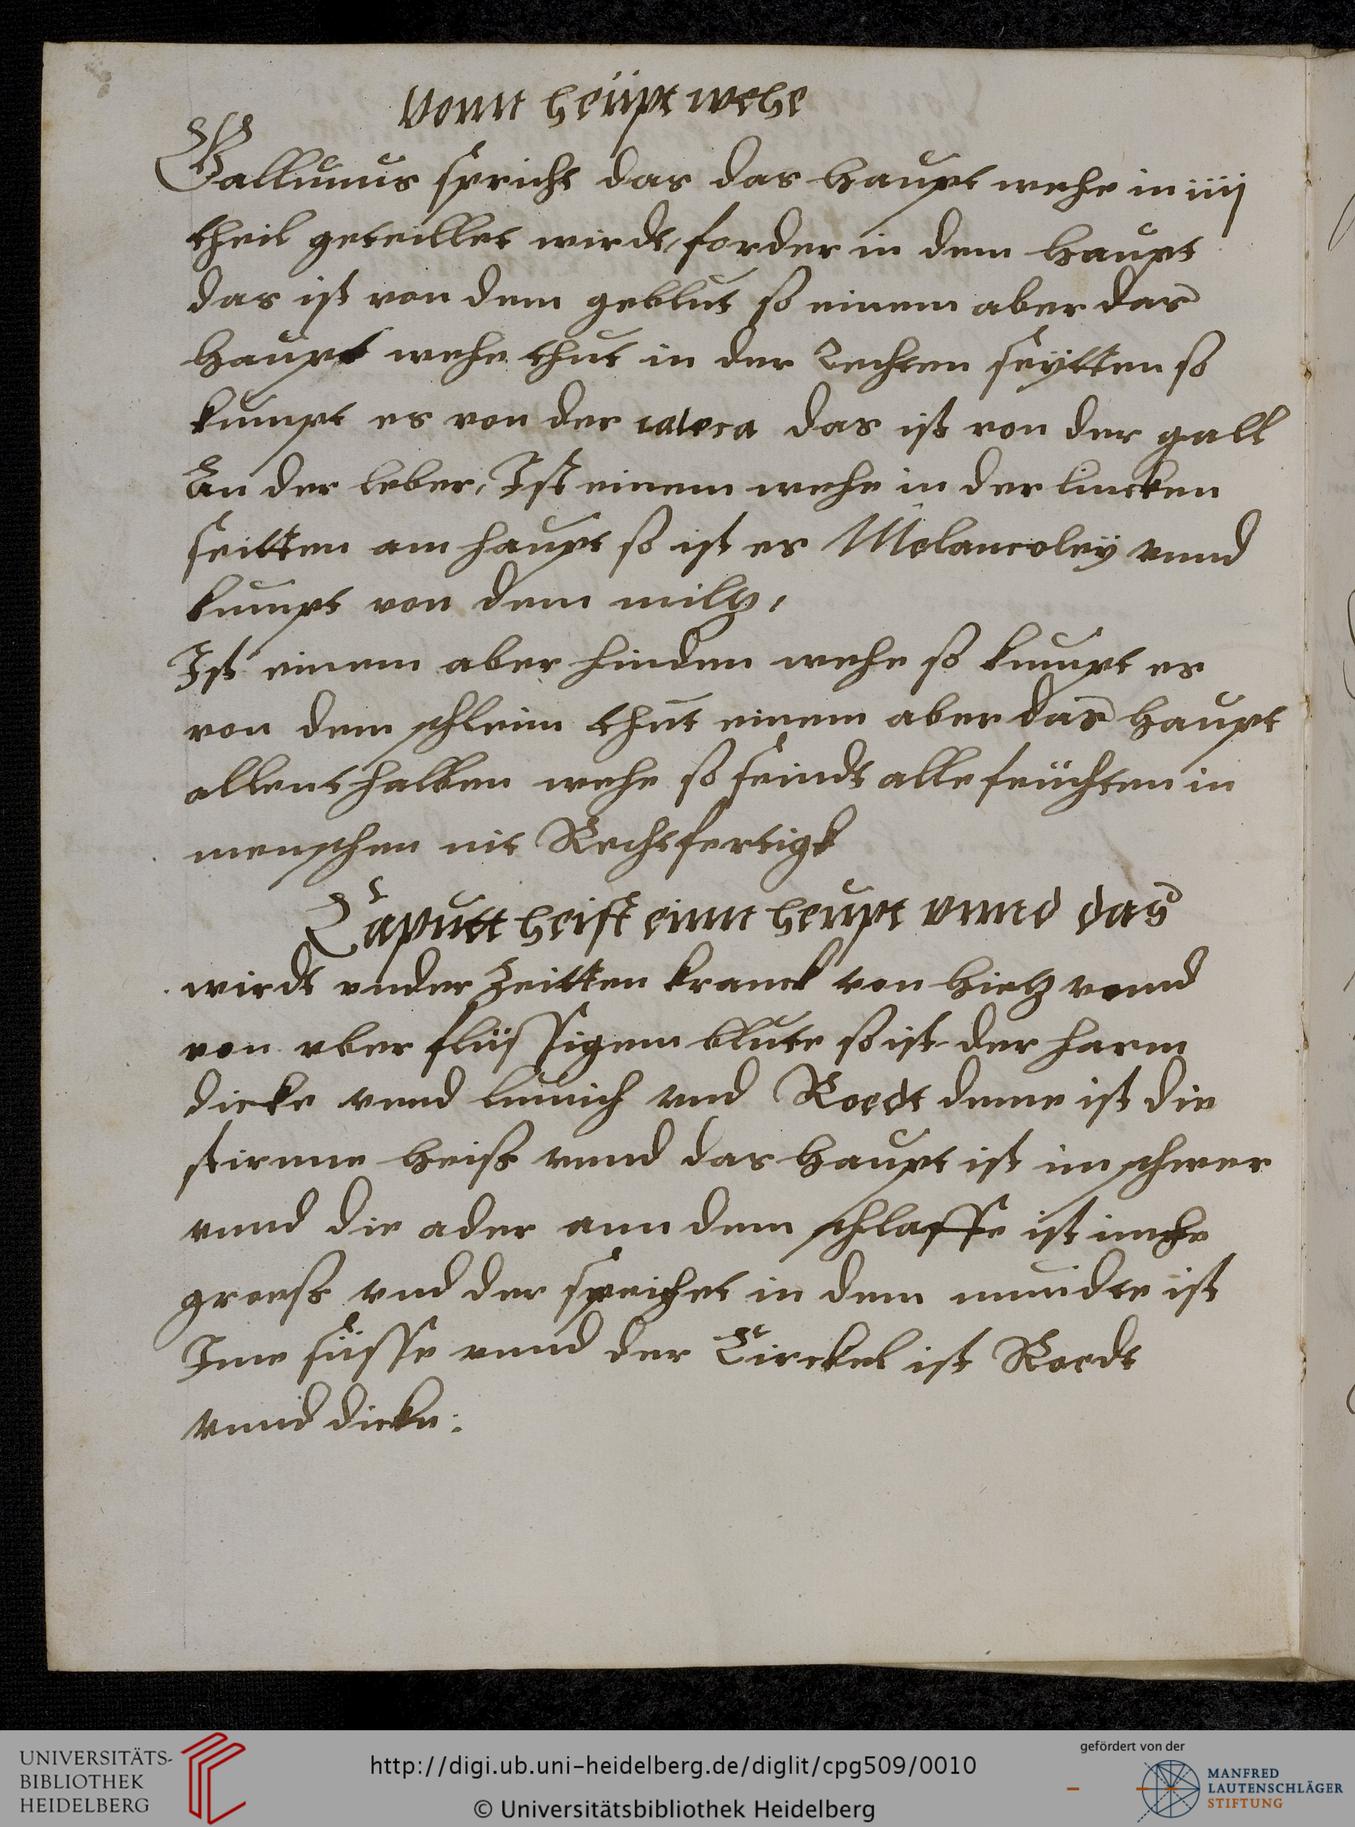 Vonn heüpt wehe
Gallienus spricht das das haupt wehe in iiij
theil geteillet wirdt, forder in dem haupt
das ist von dem geblut so einem aber das
haupt wehe thut in der Rechten seytten so
kumpt es von der colera das ist von der gall
An der leber, Ist einem wehe in der lincken
seitten am haupt so ist es Melancoley vnnd
kumpt von dem miltz,
Ist einem aber hinden wehe so kumpt es
von dem schleim thut einem aber das haupt
allenthalben wehe so seindt alle feüchten in
menschen nit Rechtfertigk
Caputt heist einn heupt vnnd das
wirdt vnder Zeitten kranck von hietz vnnd
von vber flüssigem blute so ist der harm
dicke vnnd vnd Roedt deme ist die
stirnne heiß vnnd das haupt ist im schwer
vnnd die ader ann dem schlaffe ist
groeß vnd der speichel in dem mundte ist
Ime süsse vnnd der Circkel ist Roedt
vnnd dicke.
UNIVERSITÄTS-
BIBLIOTHEK
HEIDELBERG
http://digi.ub.uni-heidelberg.de/diglit/cpg509/0010
© Universitätsbibliothek Heidelberg
gefördert von der
MANFRED
LAUTENSCHLÄGER
STIFTUNG